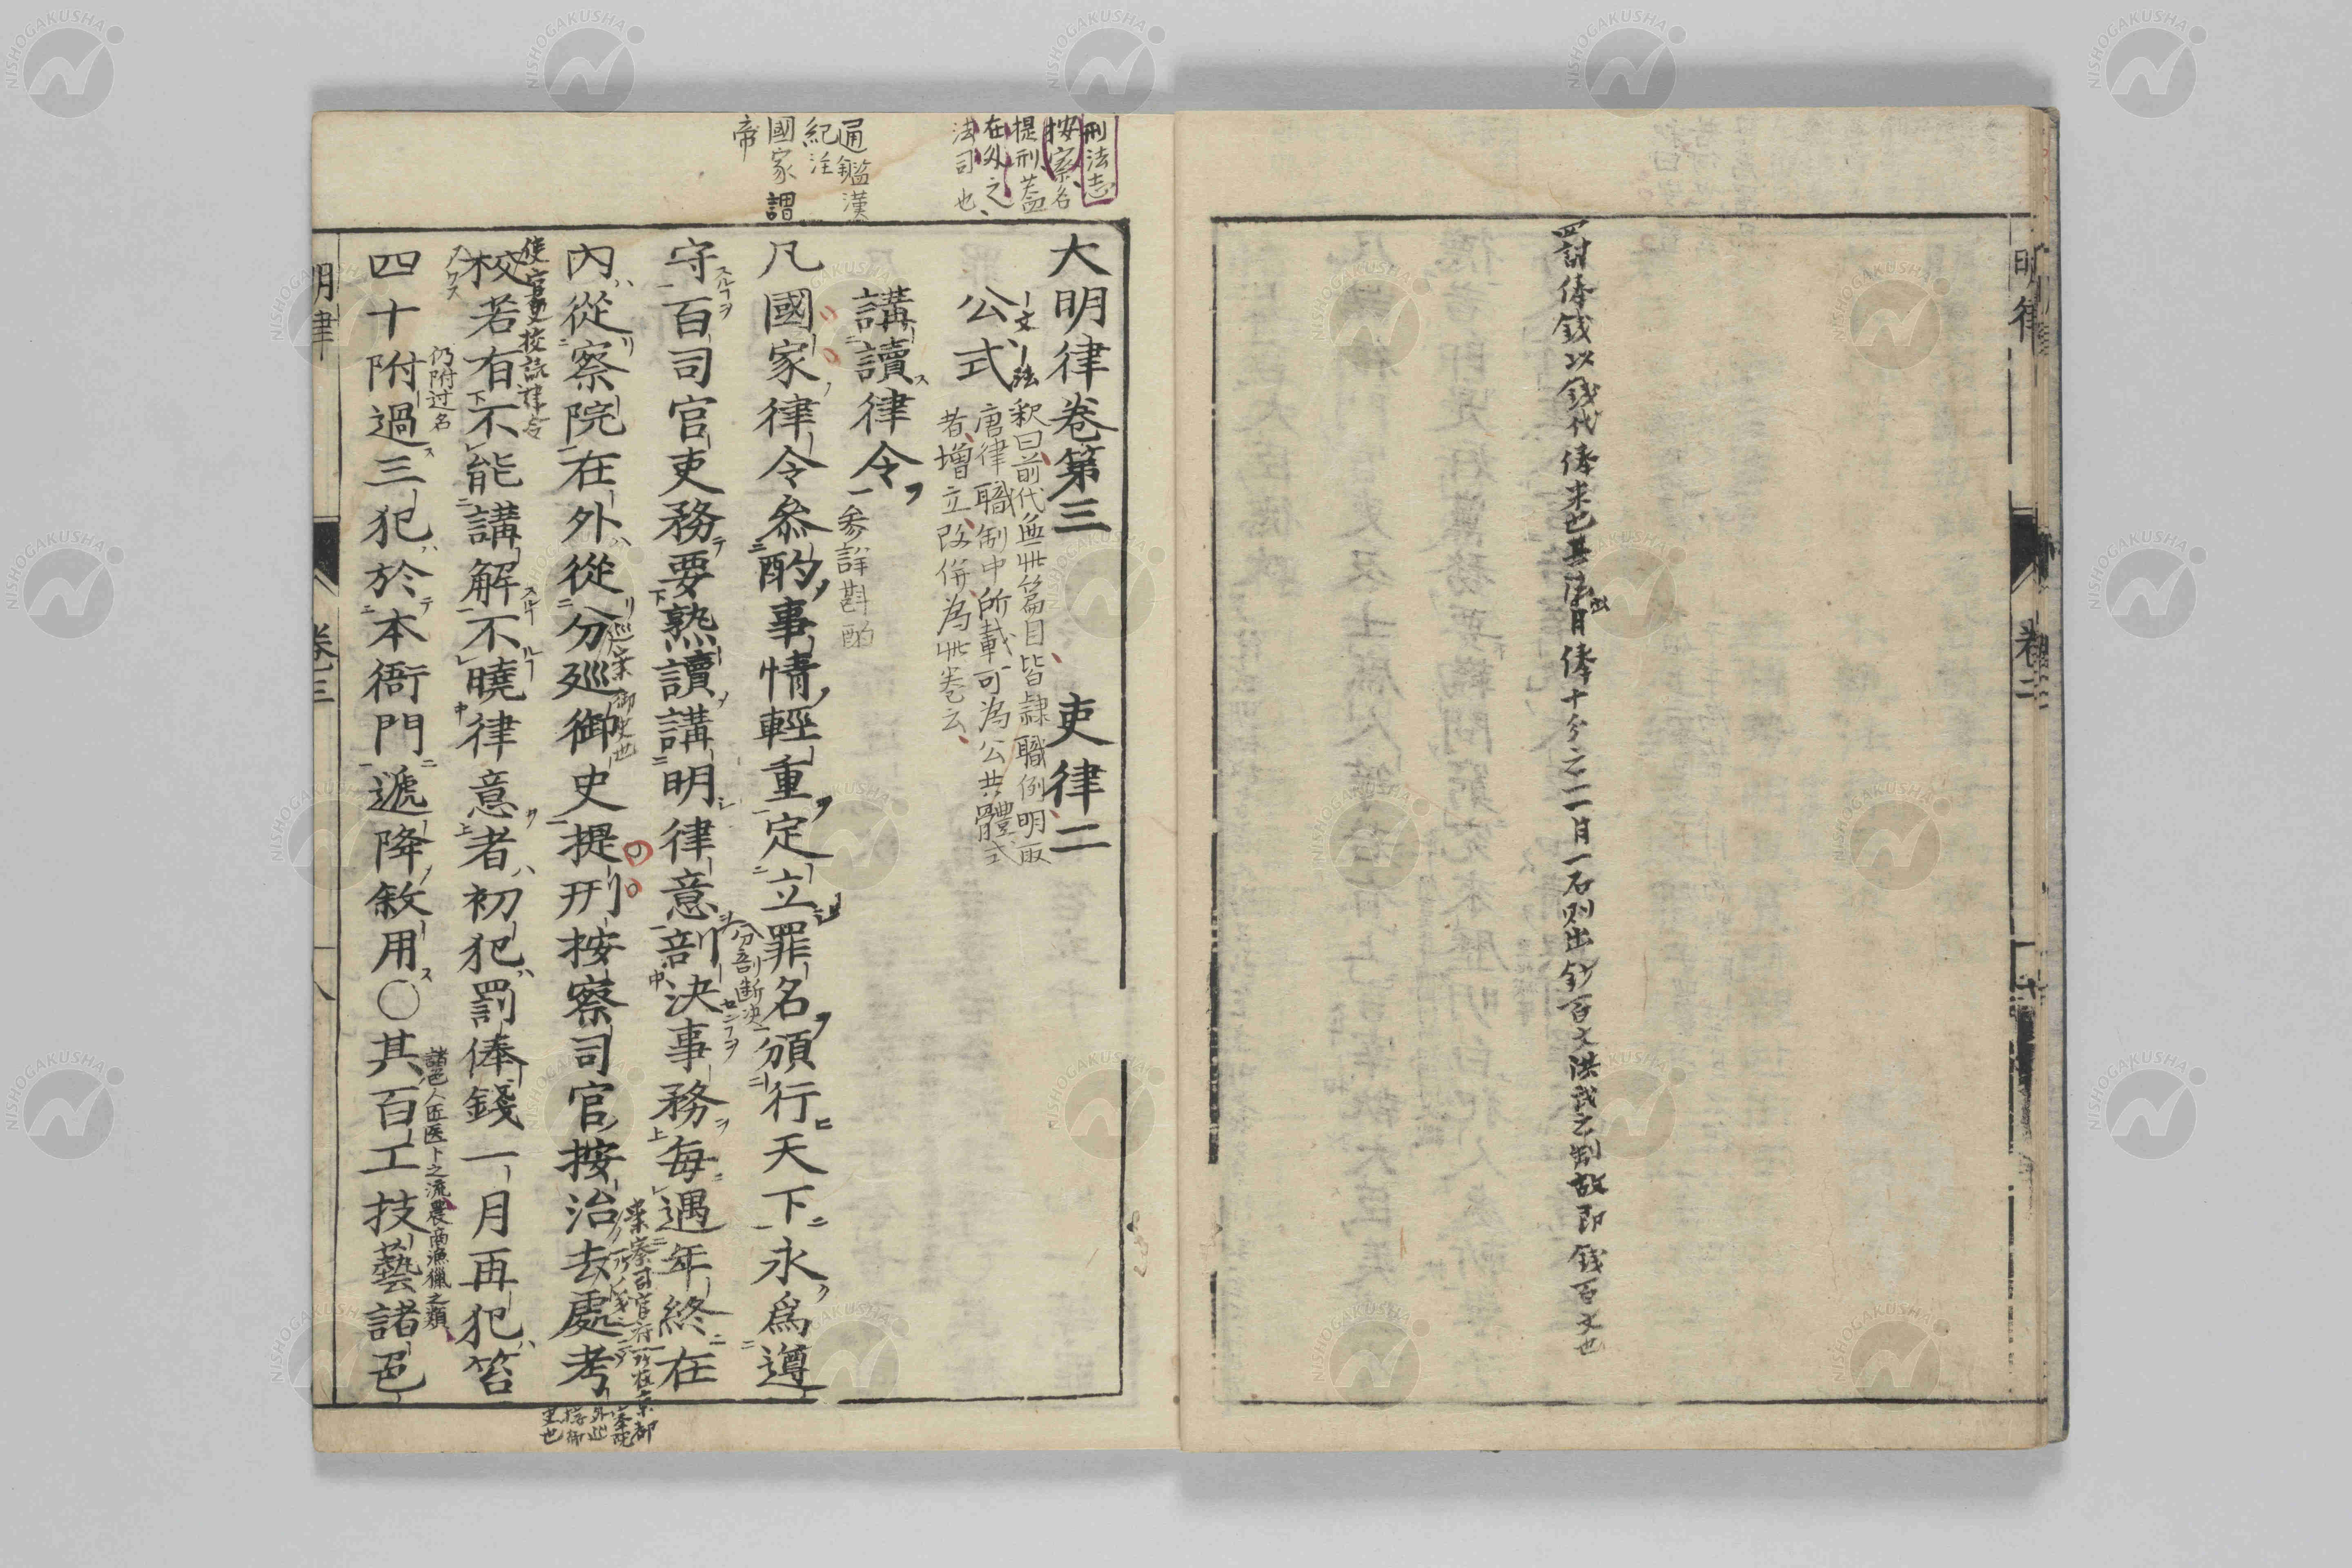 明律
卷二
罰俸錢以錢代俸米也其法出月俸十分之一一月一石則出鈔百文洪武之制故即錢百文也
刑法志
按察名
提刑蓋
在外之
法司也
通鑑漢
紀注
國家謂
帝
大明律卷第三 吏律二
公式
釈曰前代無此篇目皆隷職例明取
唐律職制中所載可為公共體式
者増立改併為此卷云
講讀律令
参詳斟酌
凡國家律令叅酌事情輕重定立罪名頒行天下永爲遵
守百司官吏務要熟讀講明律意剖決事務每遇年終在
分剖断決
內從察院在外從分巡御史提刑按察司官按治去處考
巡案御史也
校若有不能講解不曉律意者初犯罰俸錢一月再犯笞
四十附過三犯於本衙門遞降敘用○其百工技藝諸色
仍附过名
諸色人匠医卜之流農商漁獵之類
明律
卷三
八
NISHOGAKUSHA